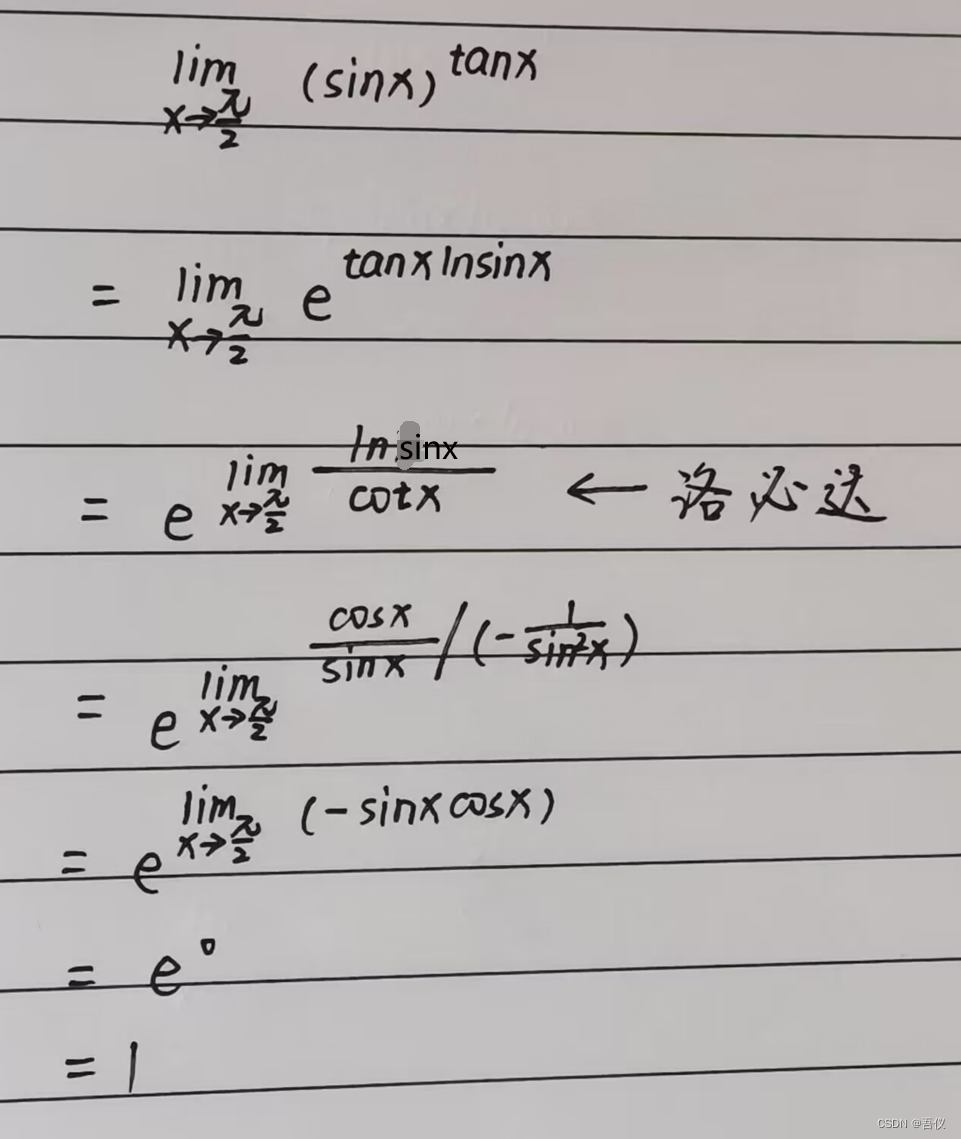 lim x→π/2 (sinx)^tanx
= lim x→π/2 e^tanx lnsinx
= e^lim x→π/2 lnsinx/cotx ← 洛必达
= e^lim x→π/2 cosx/sinx / (-1/sin²x)
= e^lim x→π/2 (-sinx cosx)
= e^0
= 1
CSDN @吾仪